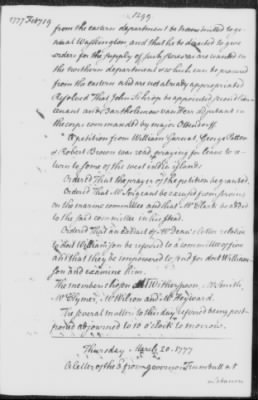 1777 Feby 19
1299
from the eastern department be transmitted to ge-
neral Washington and that he be directed to give
orders for the supply of such stores as are wanted in
the northern department & which can be procured
from the eastern and are not already appropriated
Resolved That John Schrop be appointed second lieu-
tenant and Bartholomew van Heer adjutant in
the corps commanded by major Ottendorff.
A petition from William Garrat George Patton
& Robert Brown was read praying for leave to re-
turn to some of the west india islands
Ordered That the prayer of the petition be granted.
Ordered That Mr Sergeant be excused from serving
on the marine committee and that Mr Clark be added
to the said committee in his stead.
Ordered That an extract of Mr Deane's letter relative
to Williamson be referred to a committee of five
and that they be empowered to send for doct William-
son and examine him.
The members chosen Mr Witherspoon, Mr Smith,
Mr Clymer, Mr Wilson and Mr Heyward.
The several matters to this day referred being post-
poned adjourned to 10 o'clock to morrow.
Thursday 20. 1777
A letter of the 3 from governor Trumbull at